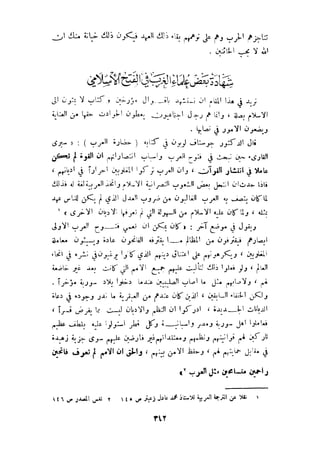 تجتاز الحرب وهم على نومهم بقاء ذلك العهد فيكون ذلك خيانة منك ان
الله لا يحب الخائنين .
شهادة بعض علماء الغرب في الفتح الإسلامي
نريد في هذا المقام ان نستشهد بأقوال مؤرخين وكتاب لا يمتون الى
الإسلام بصلة ، وانما هم رجال اجتماعيون يعطون الحوادث حقها من العناية
ويضعون الأمور في نصابها .
قال الدكتور جوستاف لوبون في كتابه ( حضارة العرب ) : « سيرى
القارىء حين نبحث في فتوح العرب واسباب انتصاراتهم ان القوة لم تكن
عاملا في انتشار القرآن ، وان العرب تركوا المغلوبين احراراً في أديانهم ،
فاذا حدث ان انتحل بعض الشعوب النصرانية الإسلام واتخذ العربية لغة له فذلك
لما كان يتصف به العرب الغالبون من ضروب العدل الذي لم يكن للناس عهد
بمثله ، ولما كان عليه الإسلام من السهولة التي لم تعرفها الأديان الأخرى »
ويقول في موضع آخر : « وكان يمكن ان تعمي فتوح العرب الأولى
ابصارهم فيقترفوا من المظالم ما يقترفه الفاتحون عادة ويسيئوا معاملة
المغلوبين ، ويكرهوهم على اعتناق دينهم الذي كانوا يرغبون في نشره في انحاء
العالم ، ولو فعلوا هذا لتألبت عليهم جميع الأمم التي كانت بعد غير خاضعة
لهم ، ولأصابهم مثل ما اصاب الصليبيين عندما دخلوا بلاد سورية مؤخراً .
ولكن الخلفاء السابقين الذين كان عندهم من العبقرية ما ندر وجوده في دعاة
الديانات الجديدة ، ادركوا ان النظم والأديان ليست مما يفرض قسراً ،
فعاملوا اهل سورية ومصر واسبانية وكل قطر استولوا عليه بلطف عظيم
تاركين لهم قوانينهم ونظمهم ومعتقداتهم غير فارضين عليهم سوى جزية زهيدة
في مقابل حمايتهم لهم ، وحفظ الأمن بينهم ، والحق ان الامم لم تعرف فاتحين
راحمين متسامحين مثل العرب »
١ نقلا عن الترجمة العربية للاستاذ عادل زعيتر ص ١٤٥ ٢ نفس المصدر ص ١٤٦
٣٤٢